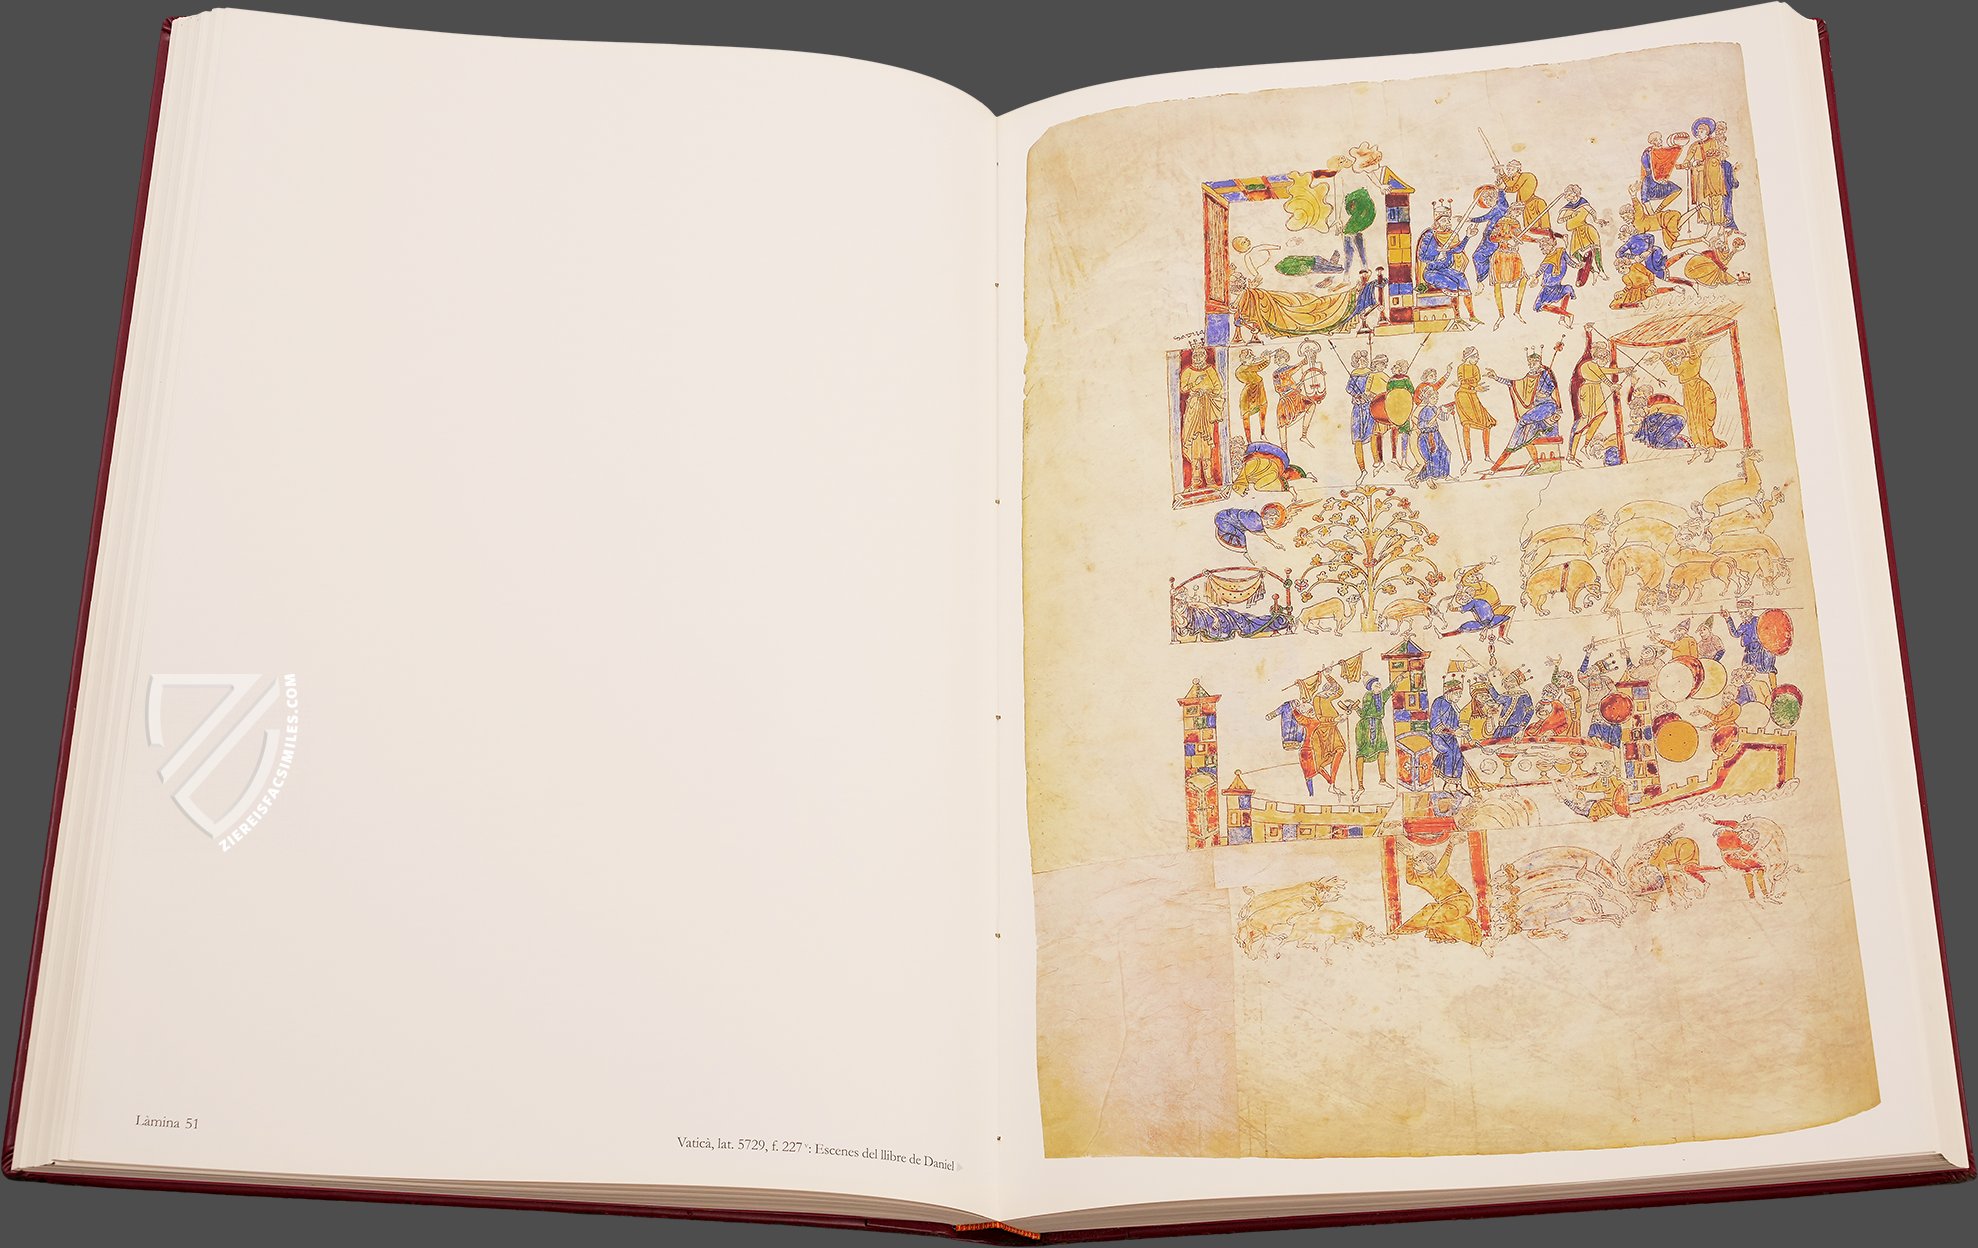 ZIEREISFACSIMILES.COM
Làmina 51
Vaticà, lat. 5729, f. 227v: Escenes del llibre de Daniel